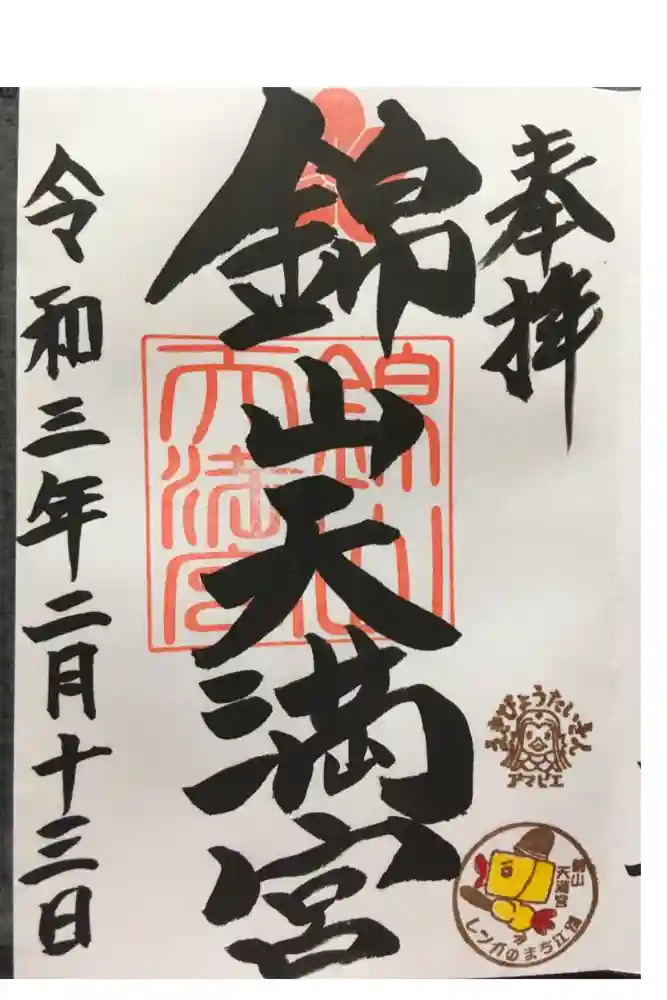 奉拝
錦山天満宮
錦山
天満宮
令和三年二月十三日
えきびょうたいさん
アマビエ
錦山
天満宮
レンガのまち江別